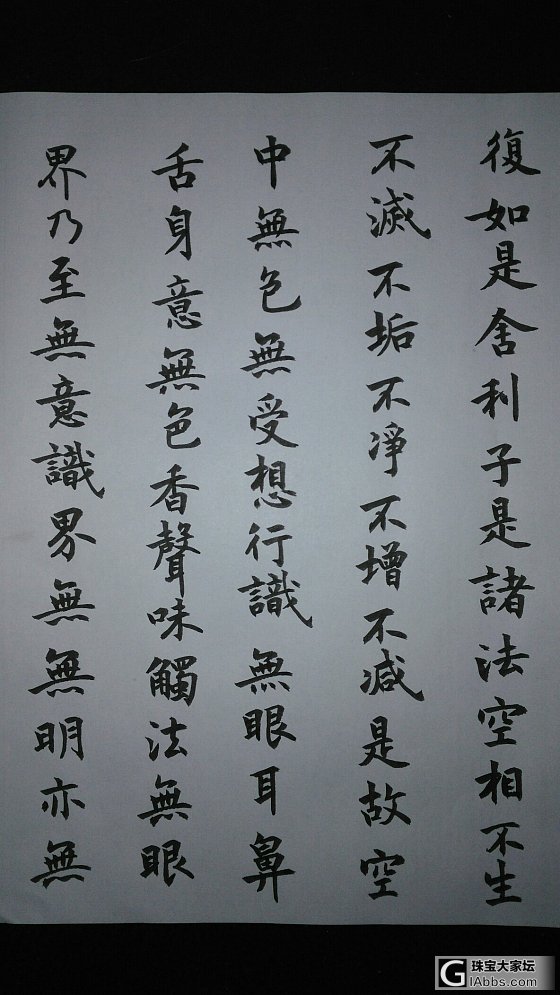 復如是舍利子是諸法空相不生
不滅不垢不淨不增不减是故空
中無色無受想行識無眼耳鼻
舌身意無色香聲味觸法無眼
界乃至無意識界無無明亦無
珠宝大家坛
GIAbbs.com